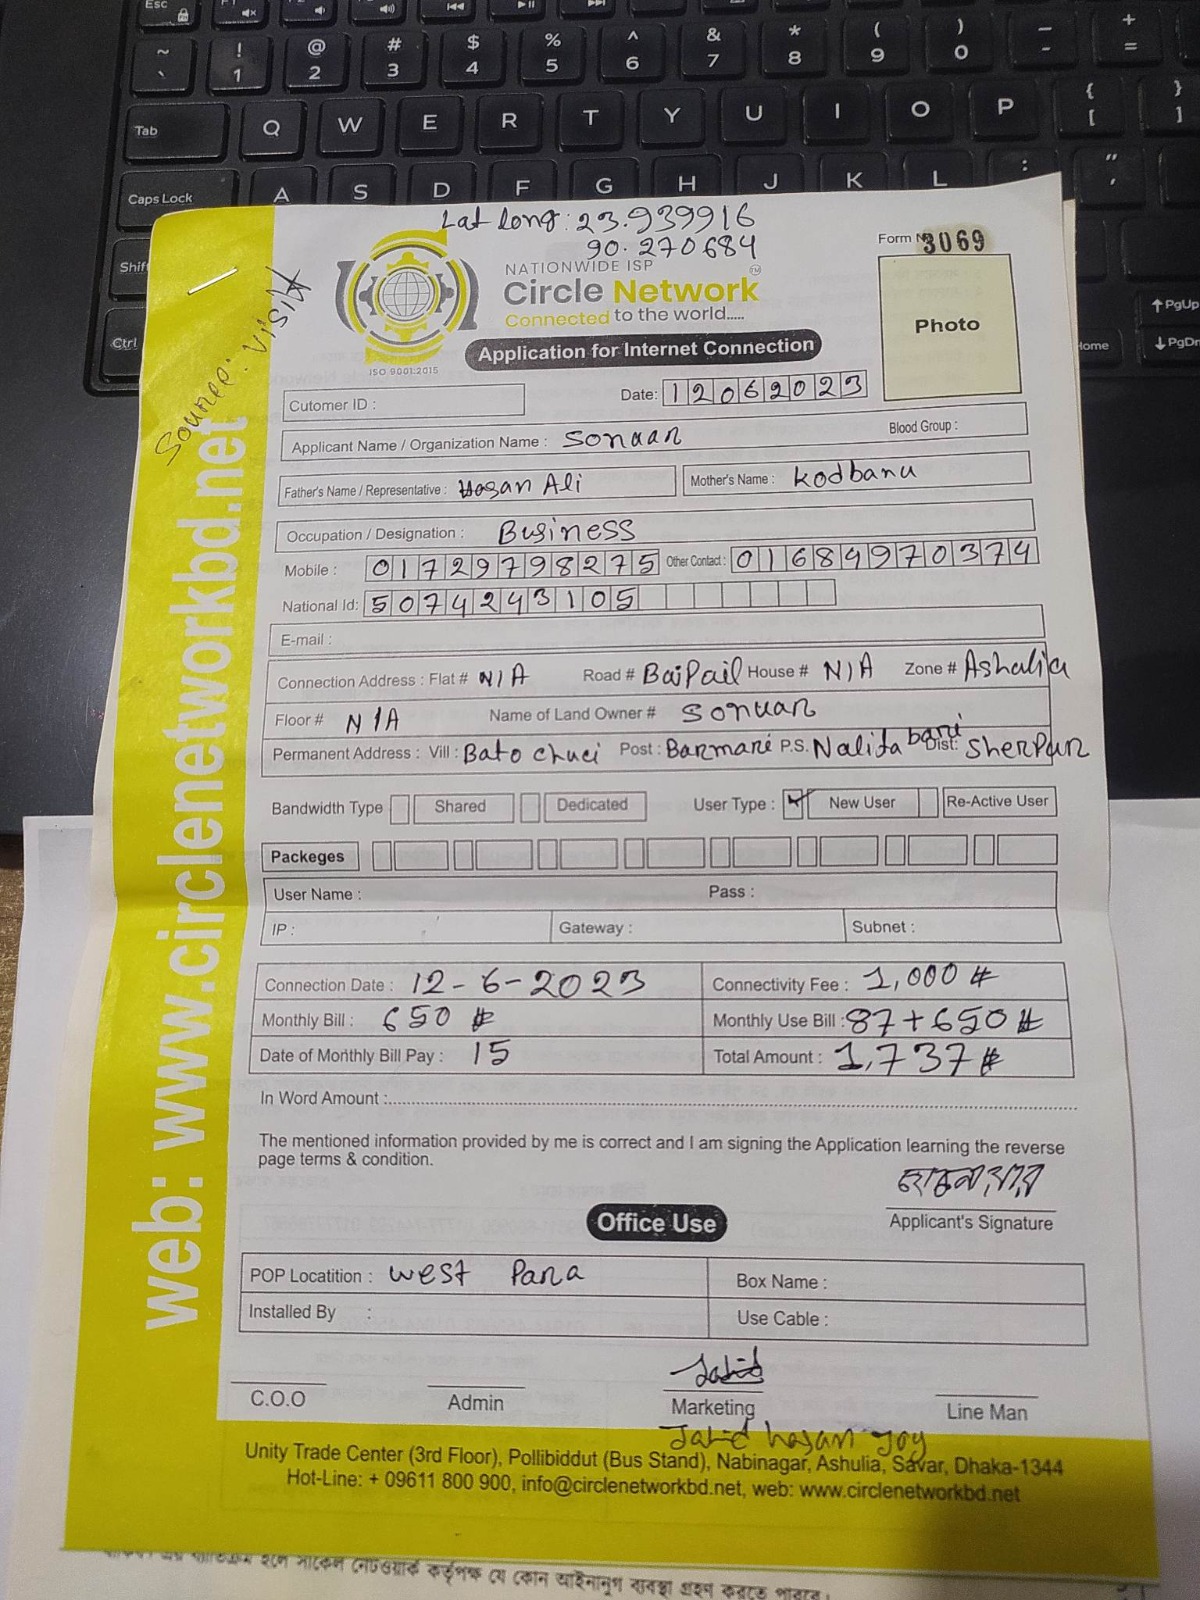 Esc F1
~ ` ! 1 @ 2 # 3 $ 4 % 5 ^ 6 & 7 * 8 ( 9 ) 0 _ - + =
Tab Q W E R T Y U I O P { [ } ]
Caps Lock A S D F G H J K L : " '
Shift
Ctrl Home PgUp PgDn
Lat Long: 23.939916
90.270684
Form № 3069
NATIONWIDE ISP
Circle Network TM
Connected to the world.....
ISO 9001:2015
Application for Internet Connection
Photo
web: www.circlenetworkbd.net
Cutomer ID :
Date: 12062023
Applicant Name / Organization Name : Sonuar Blood Group :
Father's Name / Representative : Hasan Ali Mother's Name : Kodbanu
Occupation / Designation : Business
Mobile : 01729798275 Other Contact : 01684970374
National Id: 5074243105
E-mail :
Connection Address : Flat # N/A Road # Baipail House # N/A Zone # Ashulia
Floor # N/A Name of Land Owner # Sonuar
Permanent Address : Vill : Post : Barmari P.S. Nalitabari Dist: Sherpur
Bandwidth Type Shared Dedicated User Type : ✓ New User Re-Active User
Packeges
User Name : Pass :
IP : Gateway : Subnet :
Connection Date : 12-6-2023 Connectivity Fee : 1,000 #
Monthly Bill : 650 # Monthly Use Bill : 87+650 #
Date of Monthly Bill Pay : 15 Total Amount : 1,737 #
In Word Amount :
The mentioned information provided by me is correct and I am signing the Application learning the reverse
page terms & condition.
Applicant's Signature
Office Use
POP Locatition : West Para Box Name :
Installed By : Use Cable :
Jahid
C.O.O Admin Marketing Line Man
Jahid hasan Joy
Unity Trade Center (3rd Floor), Pollibiddut (Bus Stand), Nabinagar, Ashulia, Savar, Dhaka-1344
Hot-Line: + 09611 800 900, info@circlenetworkbd.net, web: www.circlenetworkbd.net
হলে সার্কেল নেটওয়ার্ক কর্তৃপক্ষ যে কোন আইনানুগ ব্যবস্থা গ্রহণ করতে পারবে।